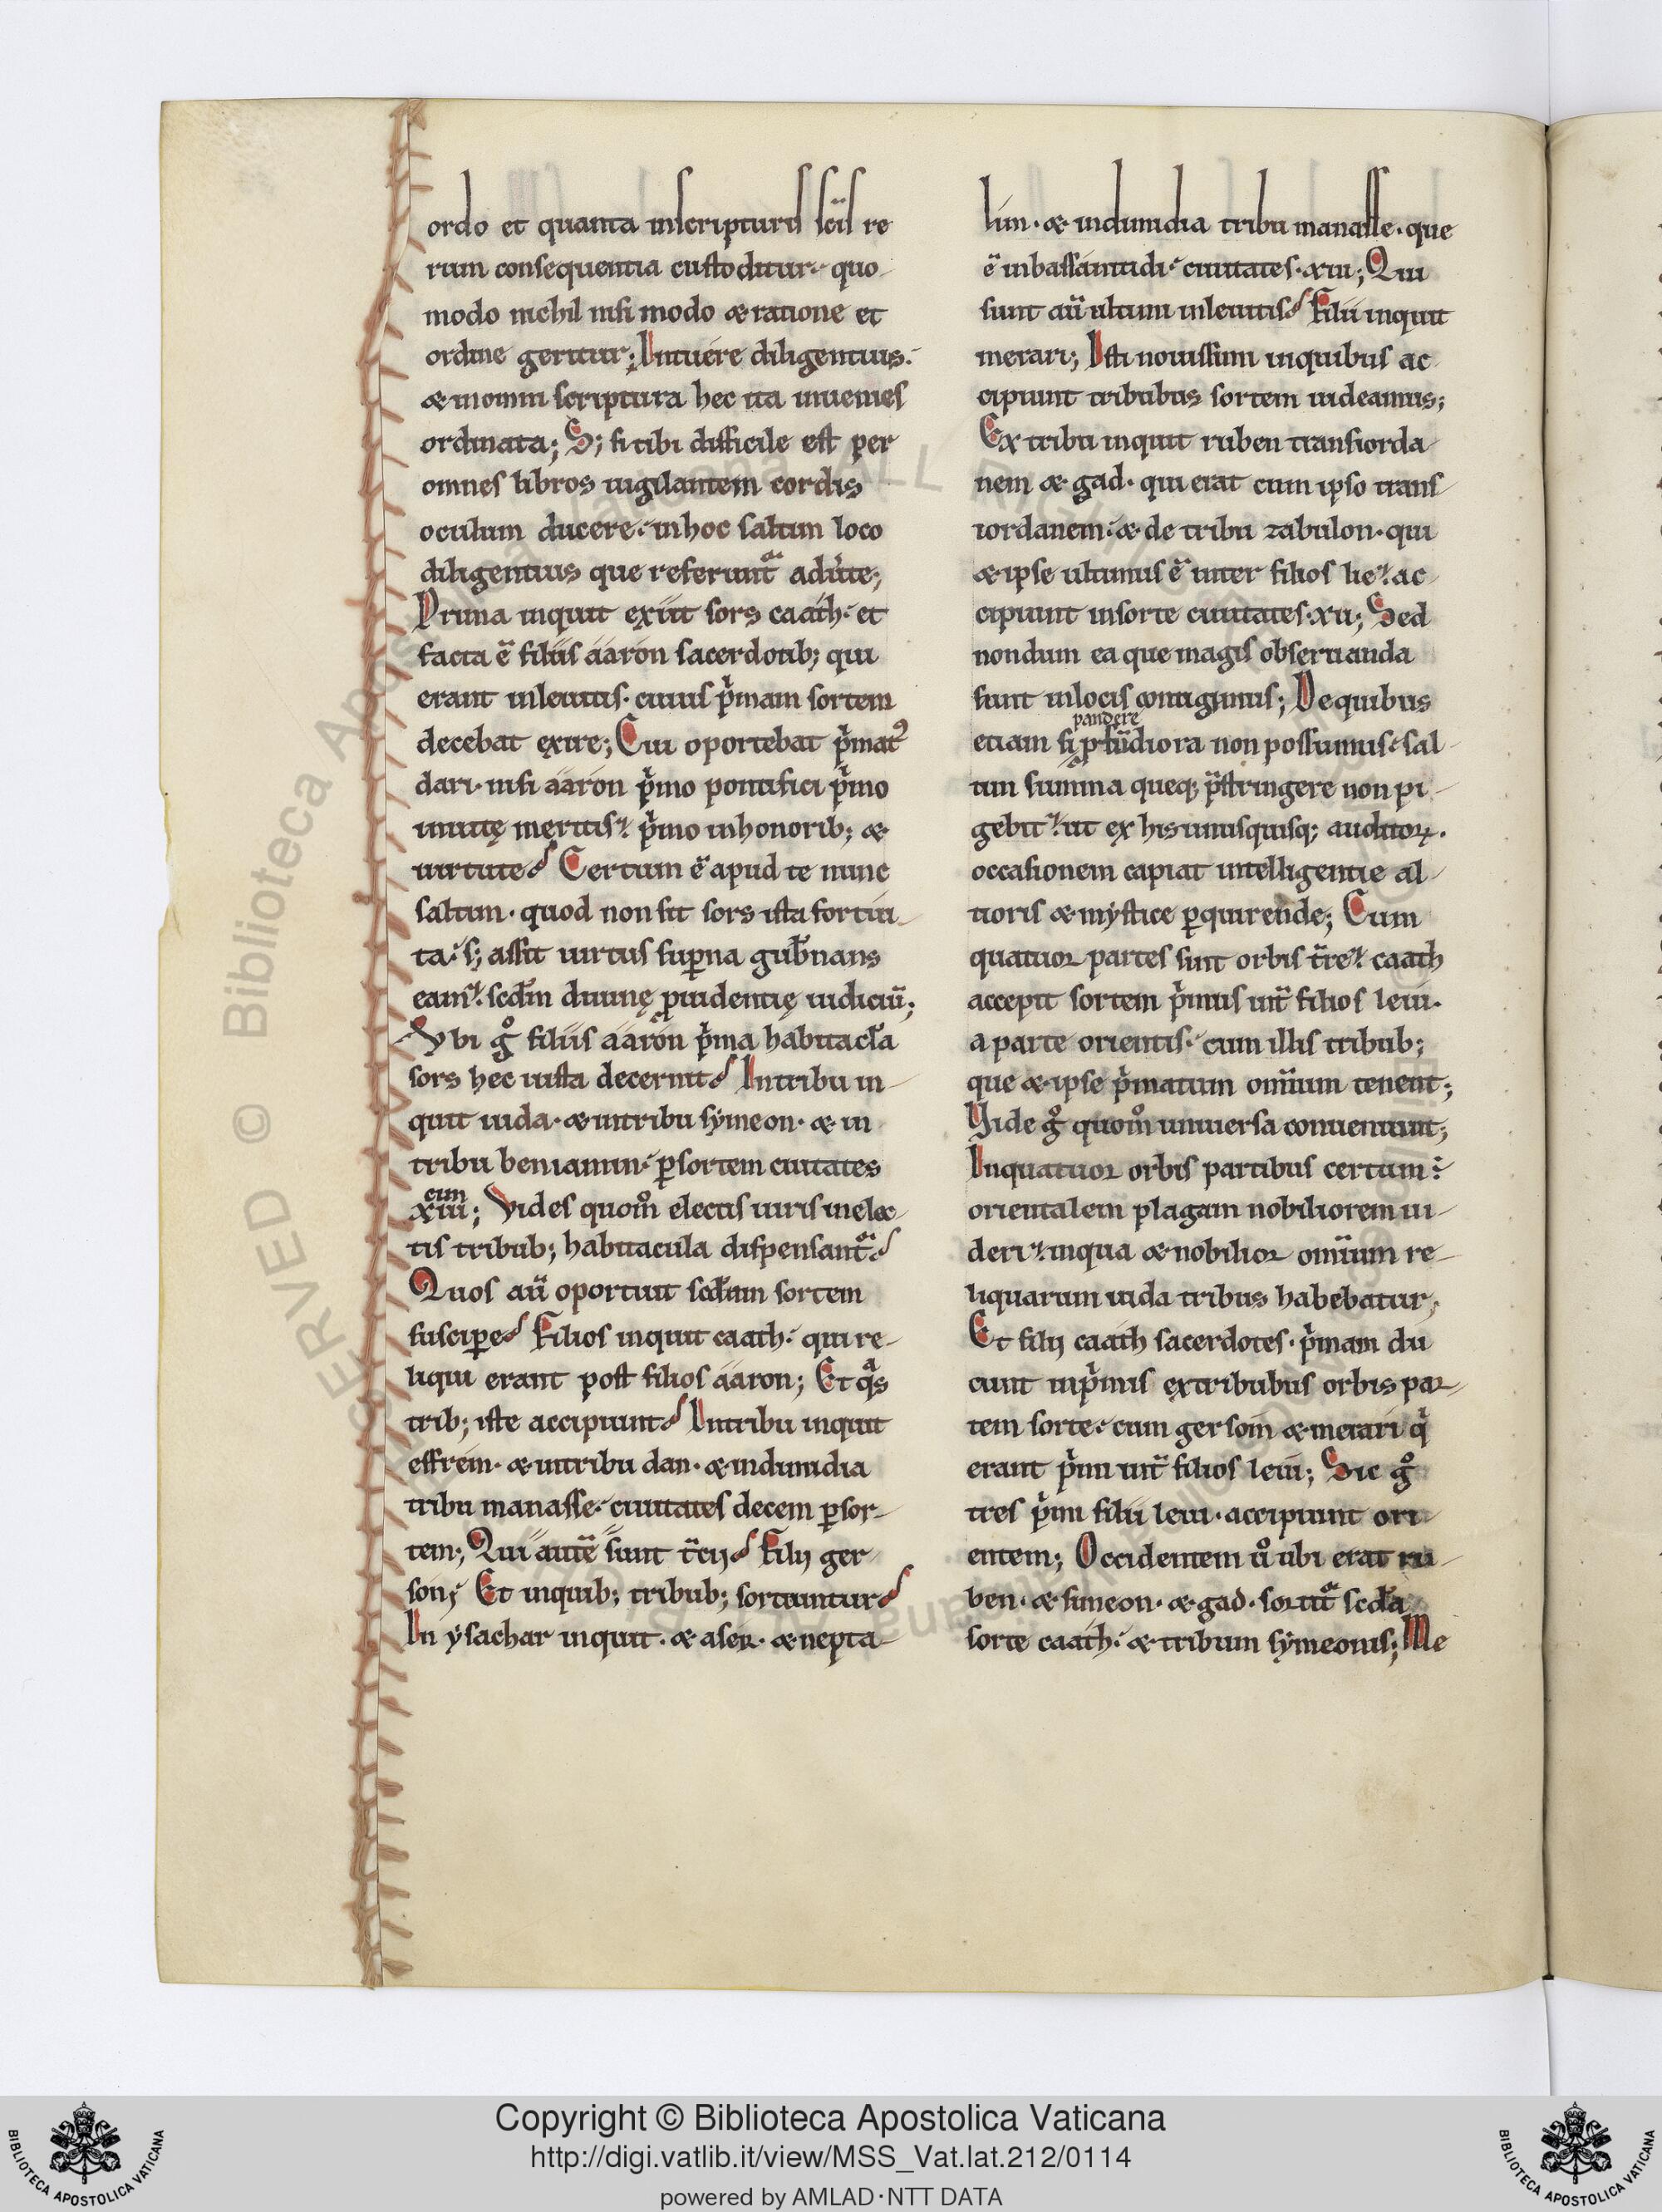 ordo et quanta inscripturis scīs re
rum consequentia custoditur. quo
modo nichil nisi modo & ratione et
ordine geritur; Intuere diligentius.
& inomni scriptura hec ita inuenies
ordinata; S; si tibi difficile est per
omnes libros uigilantem cordis
oculum ducere. inhoc saltim loco
diligentius que referunt᷑ adu̓te;
Prima inquit exiit sors caath. et
facta ē filiis áárón sacerdotib; qui
erant inleuitis. cuius pͥmam sortem
decebat exire; Cui oportebat pͥmatꝰ
dari. nisi aáron pͥmo pontifici pͥmo
inuitę meritis. pͥmo inhonorib; &
uirtute? Certum ē apud te nunc
saltim. quod non sit sors ista fortui
ta. s; assit uirtus suꝑna gub̄nans
eam. scd̄m diuinę ꝓuidentię iudiciū;
Vbi gͦ filiis aáron pͥma habitacl̄a
sors hec iusta decernit? Intribu in
quit iuda. & intribu sẏmeon. & in
tribu beniamin. ꝑsortem ciuitates
xiii; Vides quom̊ electis uiris inelec
cim
tis tribub; habitacula dispensant᷑?
Quos aū oportuit scd̄um sortem
suscipe̓? Filios inquit caath. qui re
liqui erant post filios áaron; Et qᷓs
trib; iste accipiunt? Intribu inquit
effrem. & intribu dan. & indimidia
tribu manasse. ciuitates decem ꝑsor
tem; Qui autē sunt t̄cij? Filij ger
son; Et inquib; tribub; sortiuntur?
In ẏsachar inquit. & aser. & nepta
lim. & indimidia tribu manasse. que
ē inbassántidi. ciuitates. xiii; Qui
sunt aū ultimi inleuitis? Filii inquit
merari; Isti nouissimi inquibus ac
cipiunt tribubus sortem uideamus;
Ex tribu inquit ruben transiorda
nem & gad. qui erat cum ipso trans
iordanem. & de tribu zabulon. qui
& ipse ultimus ē inter filios lie. ac
cipiunt insorte ciuitates. xii; Sed
nondum ea que magis obseruanda
sunt inlocis contigimus; De quibus
pandere
etiam si ꝓfūdiora non possumus. sal
tim summa queq; p̄stringere non pi
gebit. ut ex his unusquisq; auditoꝝ.
occasionem capiat intelligentie al
tioris & mẏstice ꝑquirende; Cum
quatuor partes sint orbis t̄re. caath
accepit sortem pͥmus int̄ filios leui.
a parte orientis. cum illis tribub;
que & ipse pͥmatum om̄ium tenent;
Vide gͦ quom̊ uniuersa conueniunt;
Inquatuor orbis partibus certum.
orientalem plagam nobiliorem ui
deri. inqua & nobilior om̄ium re
liquarum iuda tribus habebatur;
Et filij caath sacerdotes. pͥmam du
cunt inpͥmis extribubus orbis par
tem sorte. cum gersom & merari qͥ
erant pͥmi int̄ filios leui; Sic gͦ
tres pͥmi filii leui. accipiunt ori
entem; Occidentem u̓ ubi erat ru
ben. & simeon. & gad. sortit᷑ scd̄a
sorte caath. & tribum sẏmeonis; Me
Copyright © Biblioteca Apostolica Vaticana
http://digi.vatlib.it/view/MSS_Vat.lat.212/0114
powered by AMLAD·NTT DATA
BIBLIOTECA APOSTOLICA VATICANA
BIBLIOTECA APOSTOLICA VATICANA